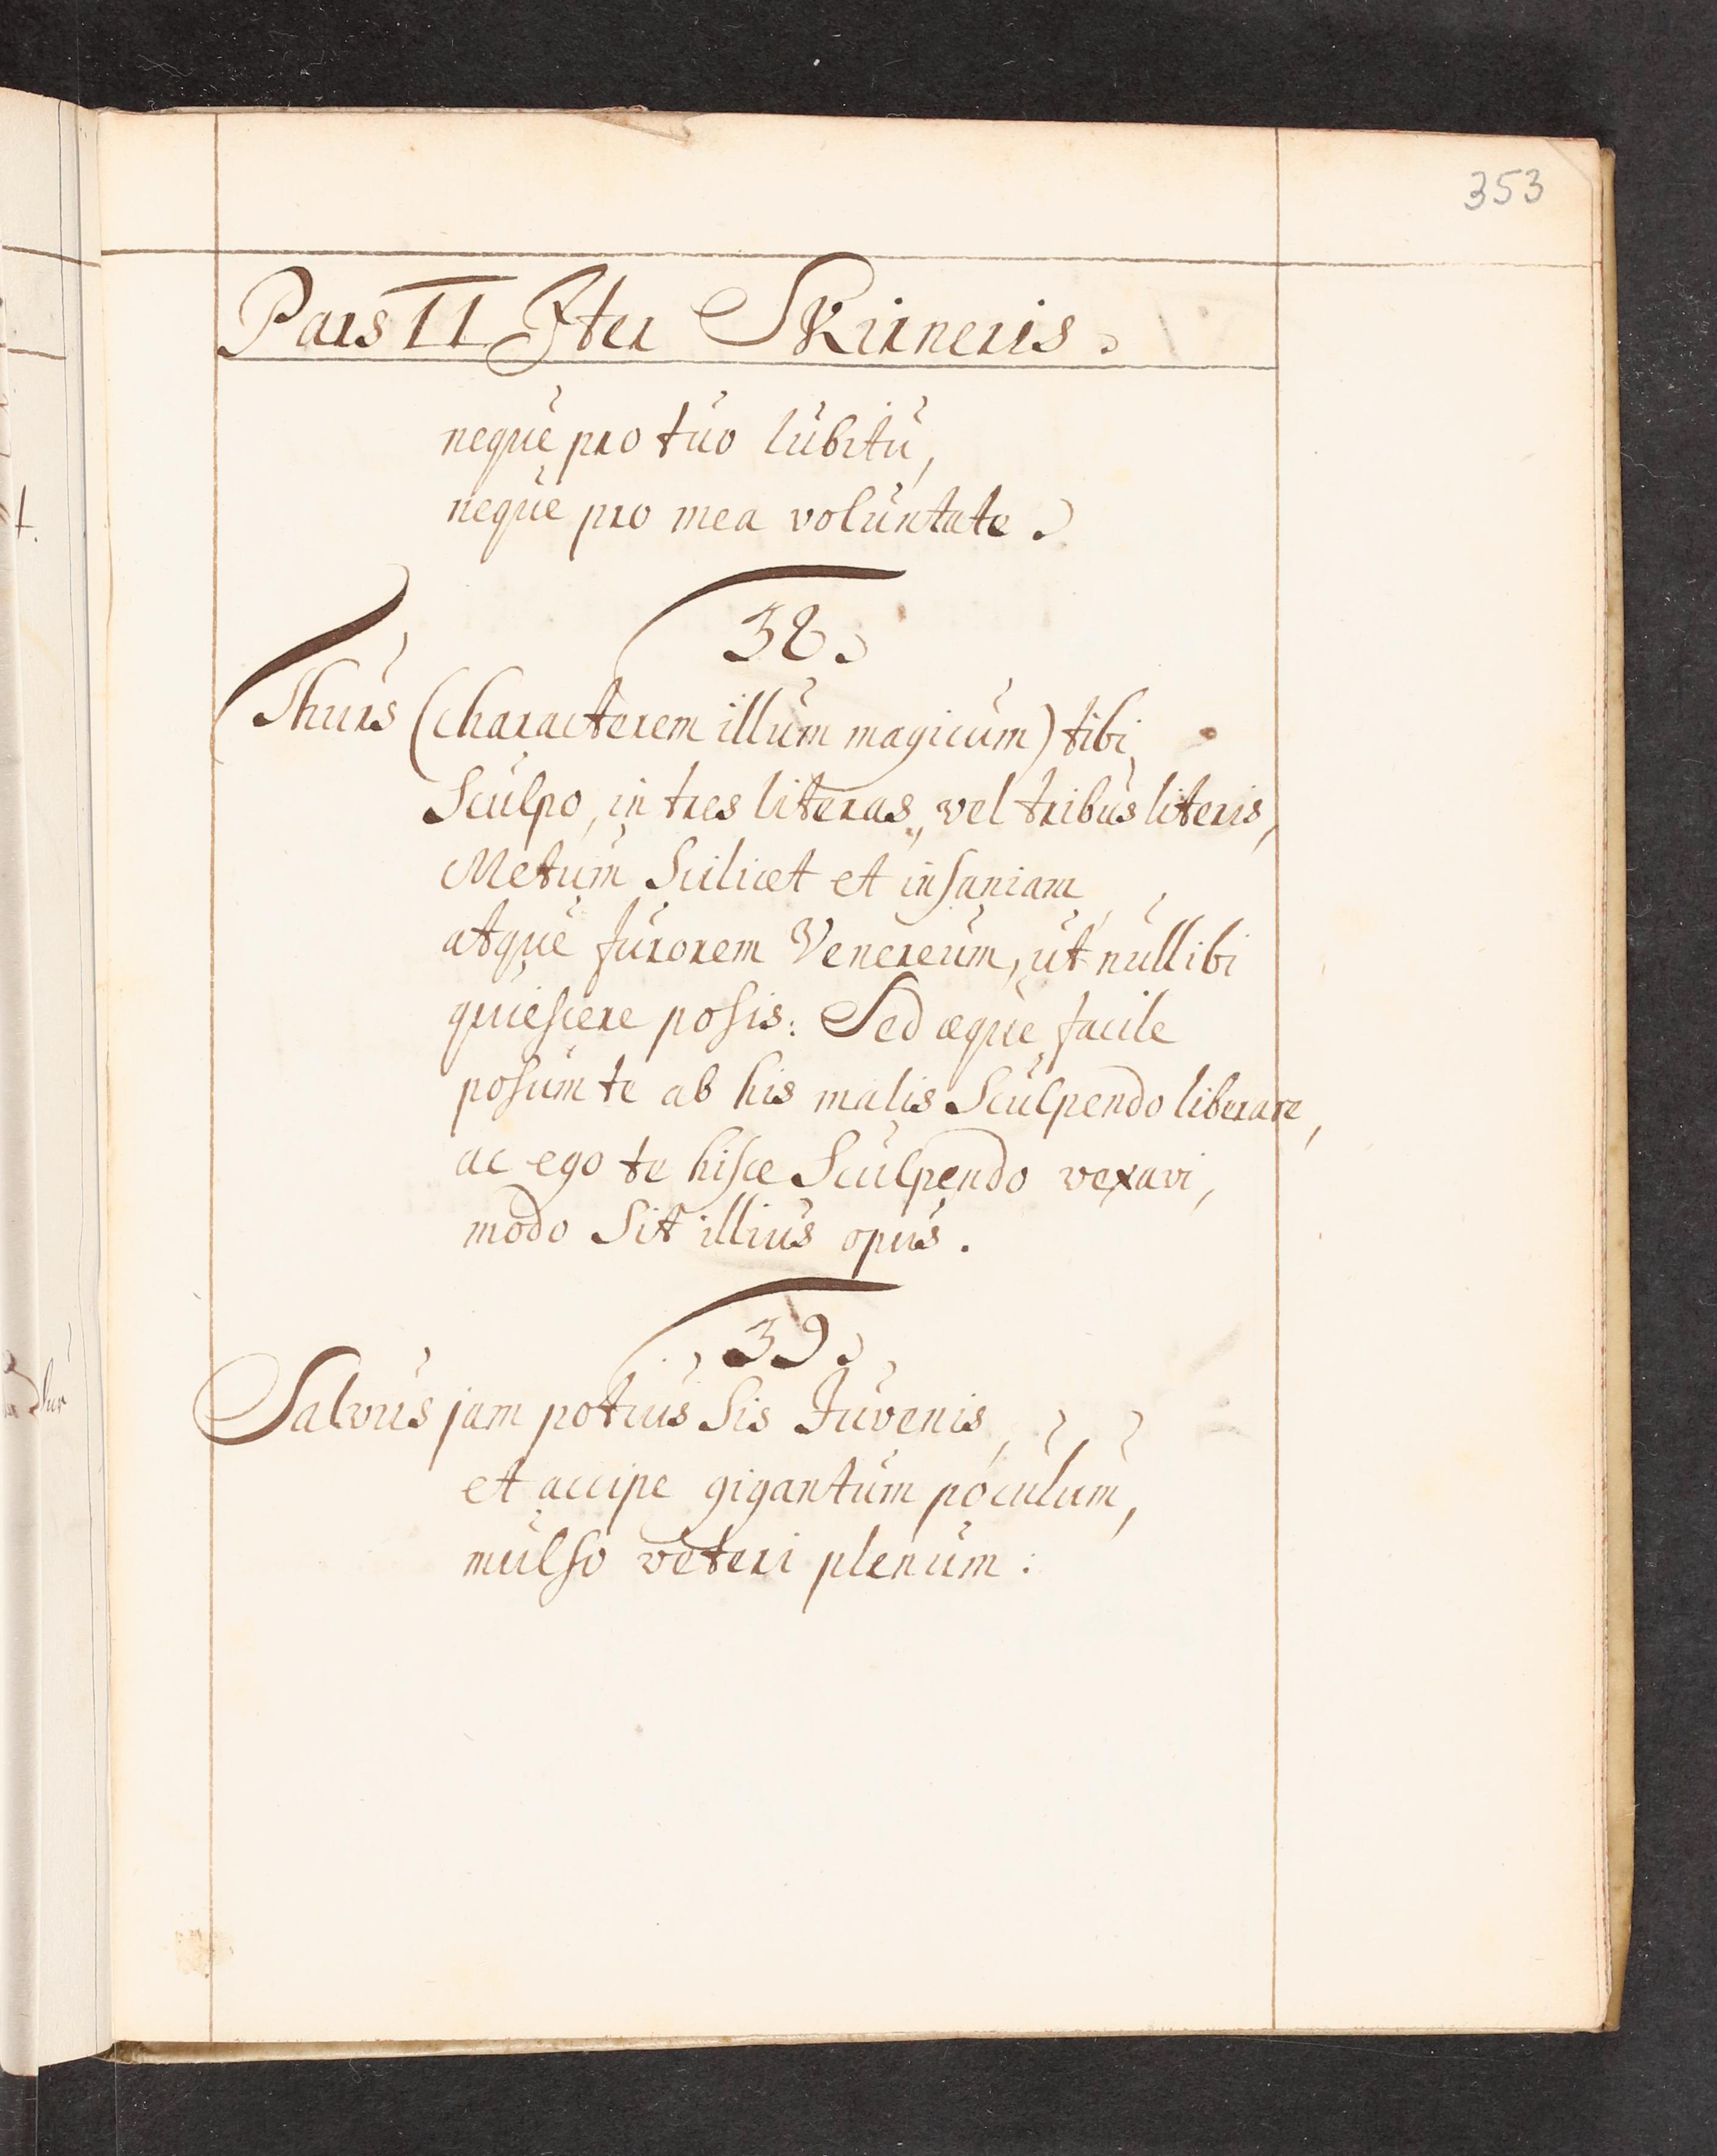 353
Pars II Iter Skirneris.
neque pro tuo lubitu,
neque pro mea voluntate.
38.
Thurs (characterem illum magicum) tibi
Sculpo, in tres literas, vel tribus literis,
Metum Scilicet et insaniam,
atque furorem Venereum, ut nullibi
quiescere posis: Sed æque facile
posum te ab his malis Sculpendo liberare,
ac ego te hisce Sculpendo vexavi,
modo Sit illius opus.
39.
Salvus jam potius Sis Juvenis,
et accipe gigantum poculum,
mulso veteri plenum: